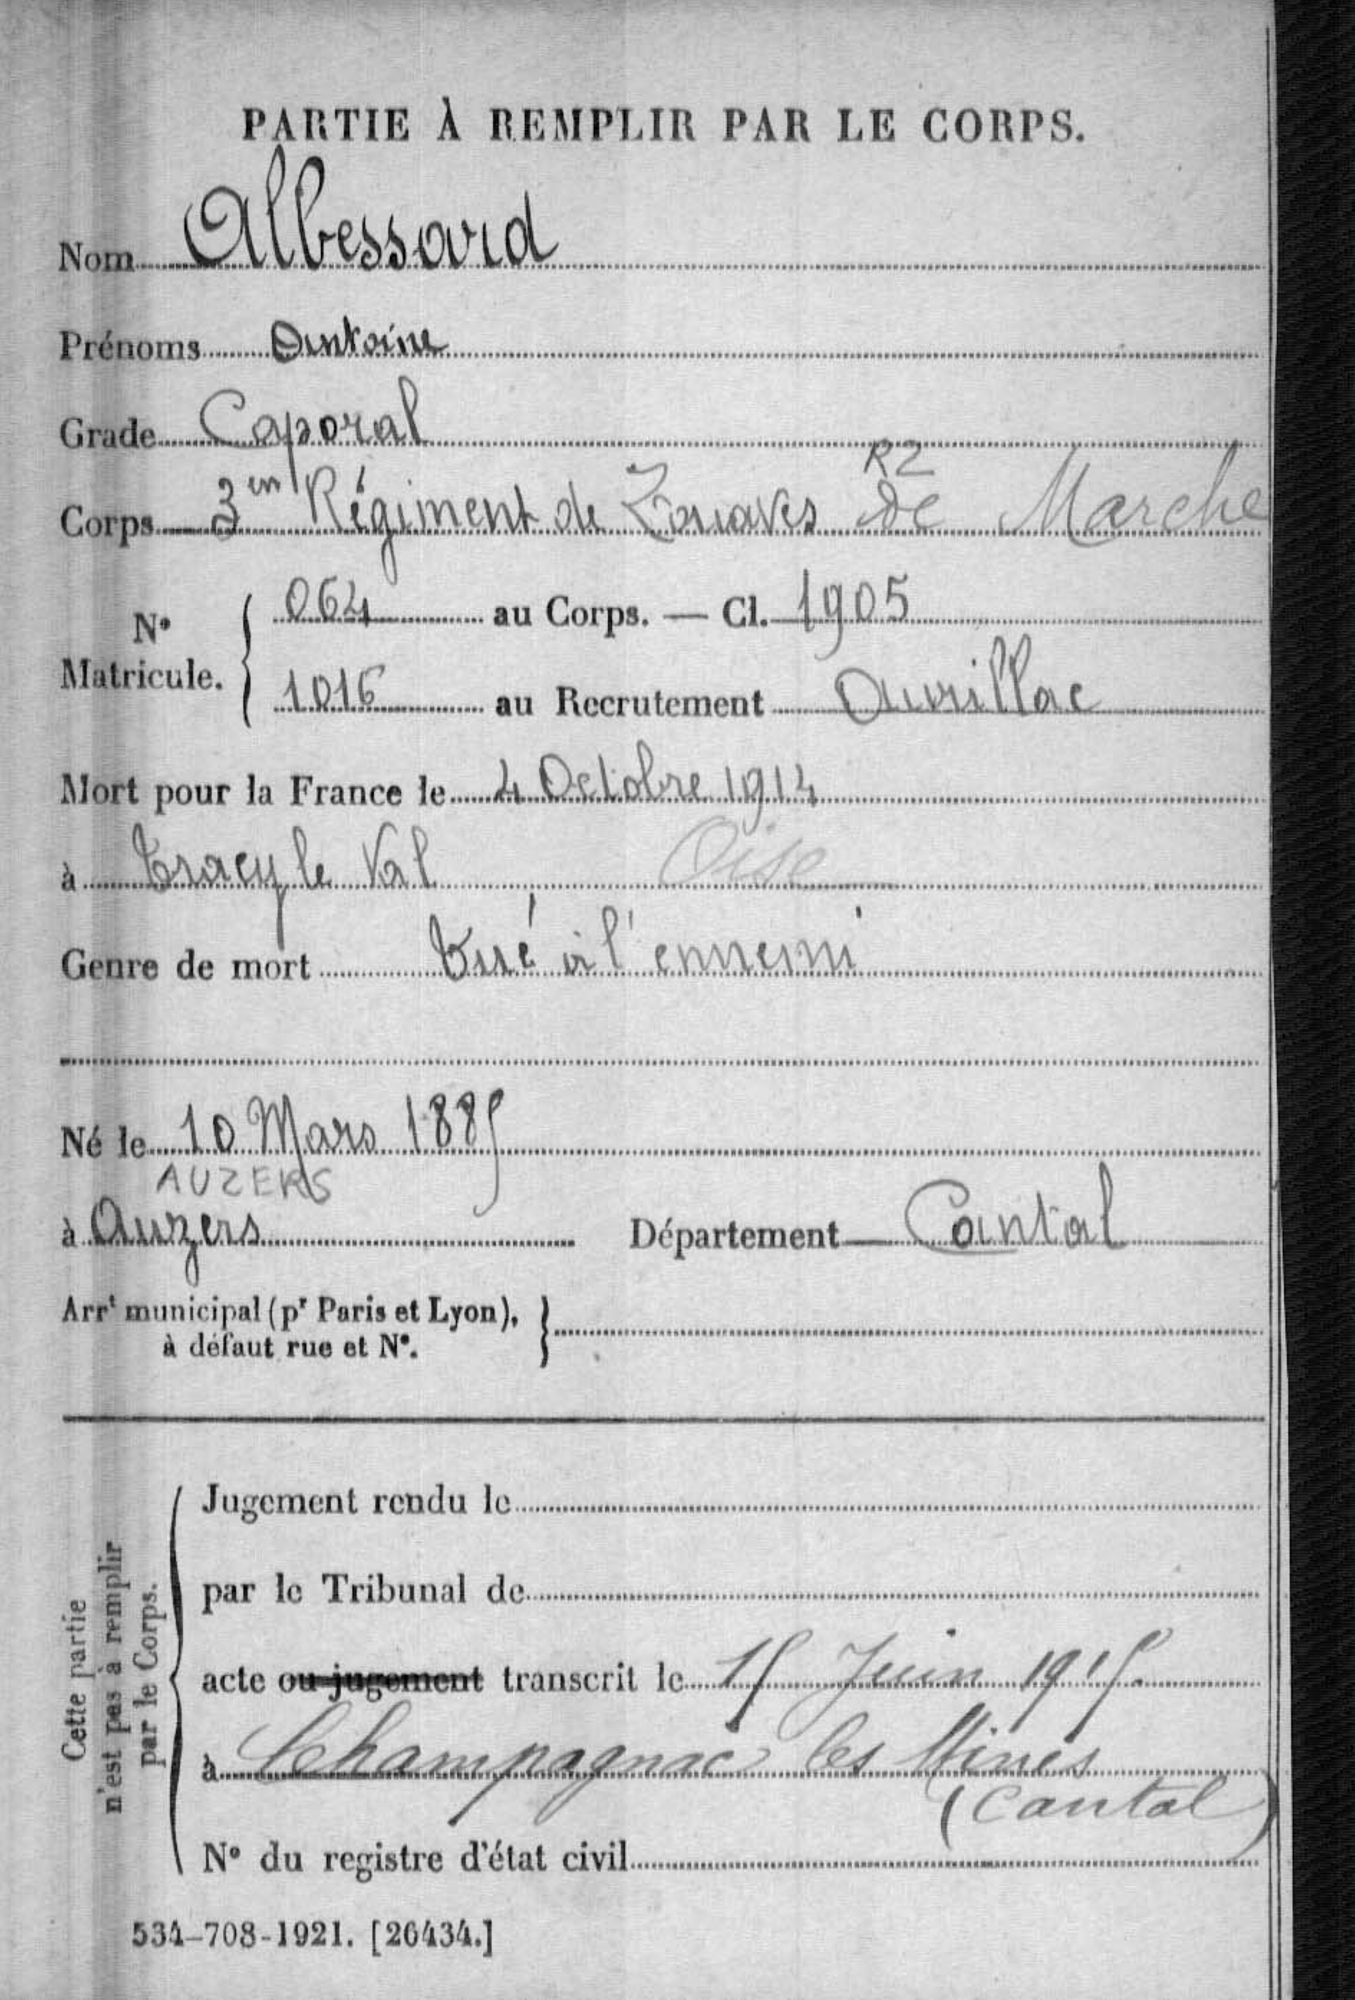 PARTIE À REMPLIR PAR LE CORPS.
Nom Albessard
Prénoms Antoine
Grade Caporal
RZ
Corps 3em Régiment de Zouaves de Marche
N° Matricule. { 064 au Corps. — Cl. 1905
1016 au Recrutement Aurillac
Mort pour la France le 4 Octobre 1914
à Tracy le Val Oise
Genre de mort Tué à l'ennemi
Né le 10 Mars 1885
AUZERS
à Auzers Département Cantal
Arrt municipal (pr Paris et Lyon),
à défaut rue et N°. }
Cette partie
n'est pas à remplir
par le Corps.
Jugement rendu le
par le Tribunal de
acte ou jugement transcrit le 15 Juin 1915.
à Champagnac les Mines
(Cantal)
N° du registre d'état civil
534-708-1921. [26434.]